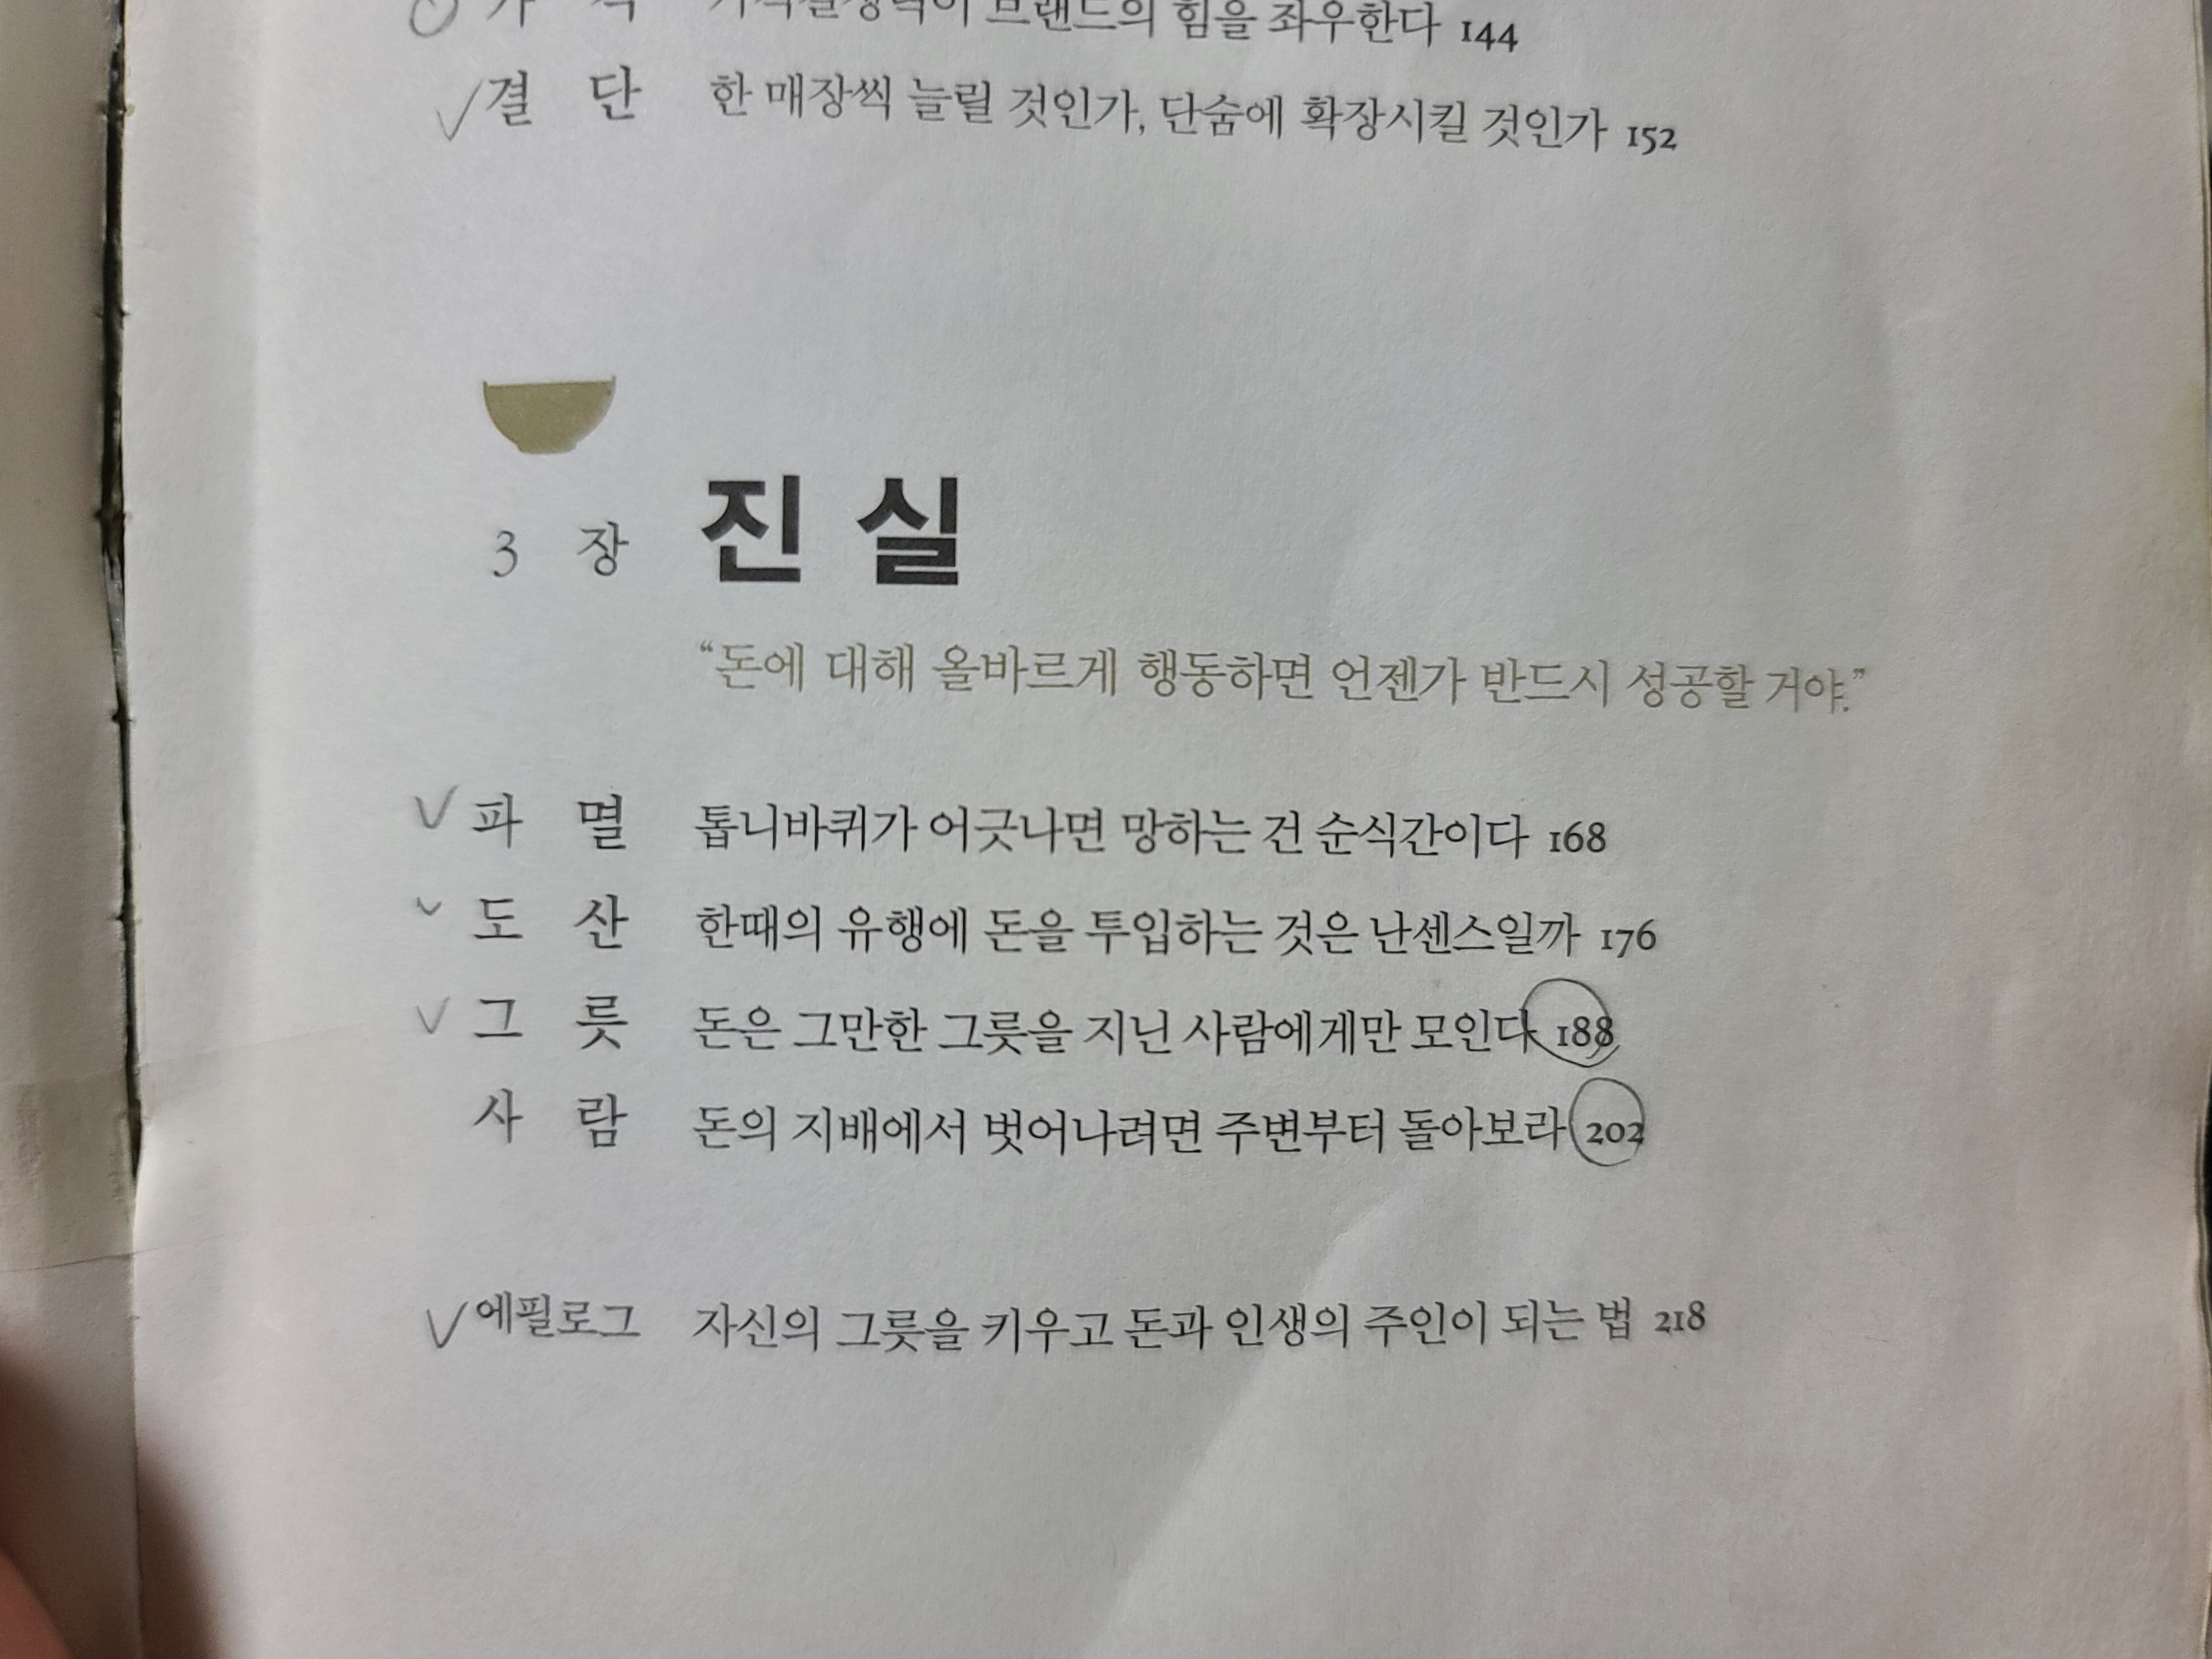 가 격 가격결정력이 브랜드의 힘을 좌우한다 144
결 단 한 매장씩 늘릴 것인가, 단숨에 확장시킬 것인가 152
3 장 진 실
“돈에 대해 올바르게 행동하면 언젠가 반드시 성공할 거야.”
파 멸 톱니바퀴가 어긋나면 망하는 건 순식간이다 168
도 산 한때의 유행에 돈을 투입하는 것은 난센스일까 176
그 릇 돈은 그만한 그릇을 지닌 사람에게만 모인다 188
사 람 돈의 지배에서 벗어나려면 주변부터 돌아보라 202
에필로그 자신의 그릇을 키우고 돈과 인생의 주인이 되는 법 218